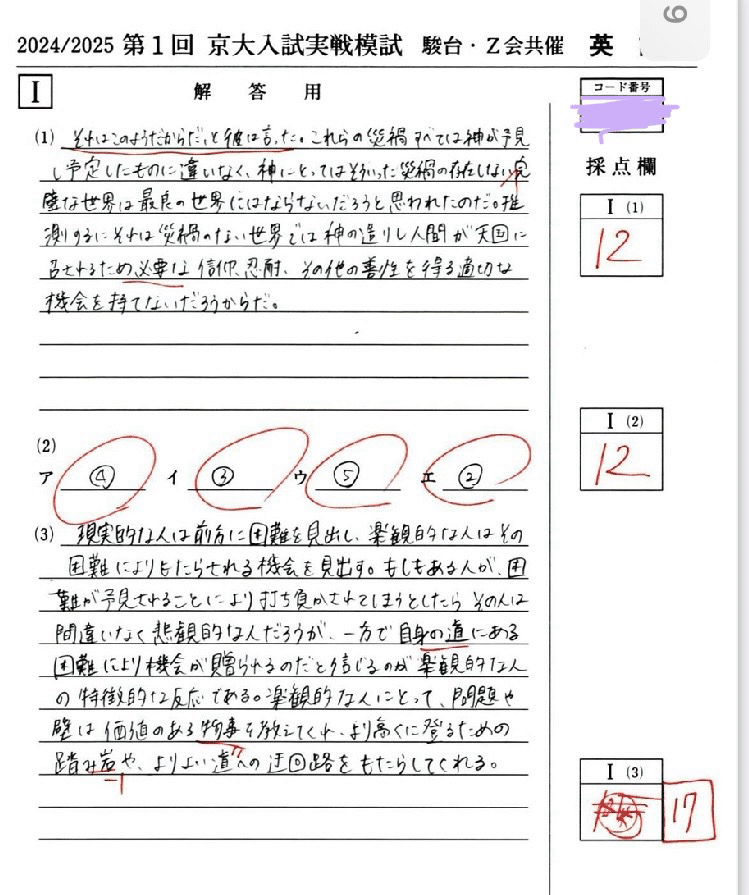 6
2024/2025 第1回 京大入試実戦模試 駿台・Z会共催 英
I 解答用
コード番号
採点欄
(1) それはこのようだからだ、と彼は言った。これらの災禍すべては神が予見
し予定したものに違いなく、神にとってはそういった災禍の存在しない完
璧な世界は最良の世界にはならないだろうと思われたのだ。推
測するにそれは災禍のない世界では神の造りし人間が天国に
召されるため必要な信仰、忍耐、その他の善性を得る適切な
機会を持てないだろうからだ。
I (1)
12
(2)
ア ④ イ ③ ウ ⑤ エ ②
I (2)
12
(3) 現実的な人は前方に困難を見出し、楽観的な人はその
困難によりもたらされる機会を見出す。もしもある人が、困
難が予見されることにより打ち負かされてしまうとしたらその人は
間違いなく悲観的なんだろうが、一方で自身の道にある
困難により機会が贈られるのだと信じるのが楽観的な人
の特徴的な反応である。楽観的な人にとって、問題や
壁は価値のある物事を教えてくれ、より高くに登るための
踏み岩や、よりよい道への迂回路をもたらしてくれる。
-1
I (3)
17